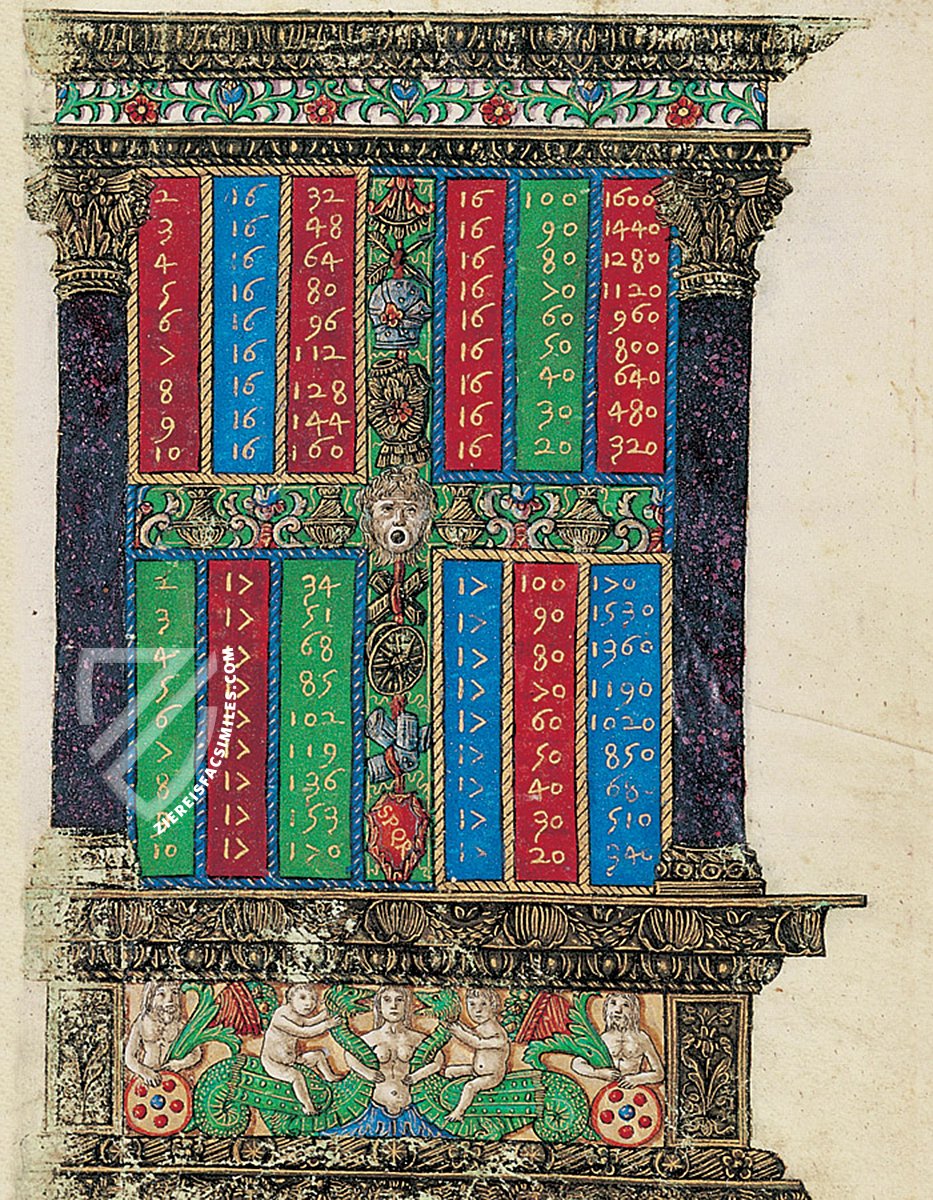 2 16 32
3 16 48
4 16 64
5 16 80
6 16 96
7 16 112
8 16 128
9 16 144
10 16 160
16 100 1600
16 90 1440
16 80 1280
16 70 1120
16 60 960
16 50 800
16 40 640
16 30 480
16 20 320
2 17 34
3 17 51
4 17 68
5 17 85
6 17 102
7 17 119
8 17 136
17 153
10 17 170
17 100 170
17 90 1530
17 80 1360
17 70 1190
17 60 1020
17 50 850
17 40 680
17 30 510
17 20 340
SPQR
ZIEREISFACSIMILES.COM